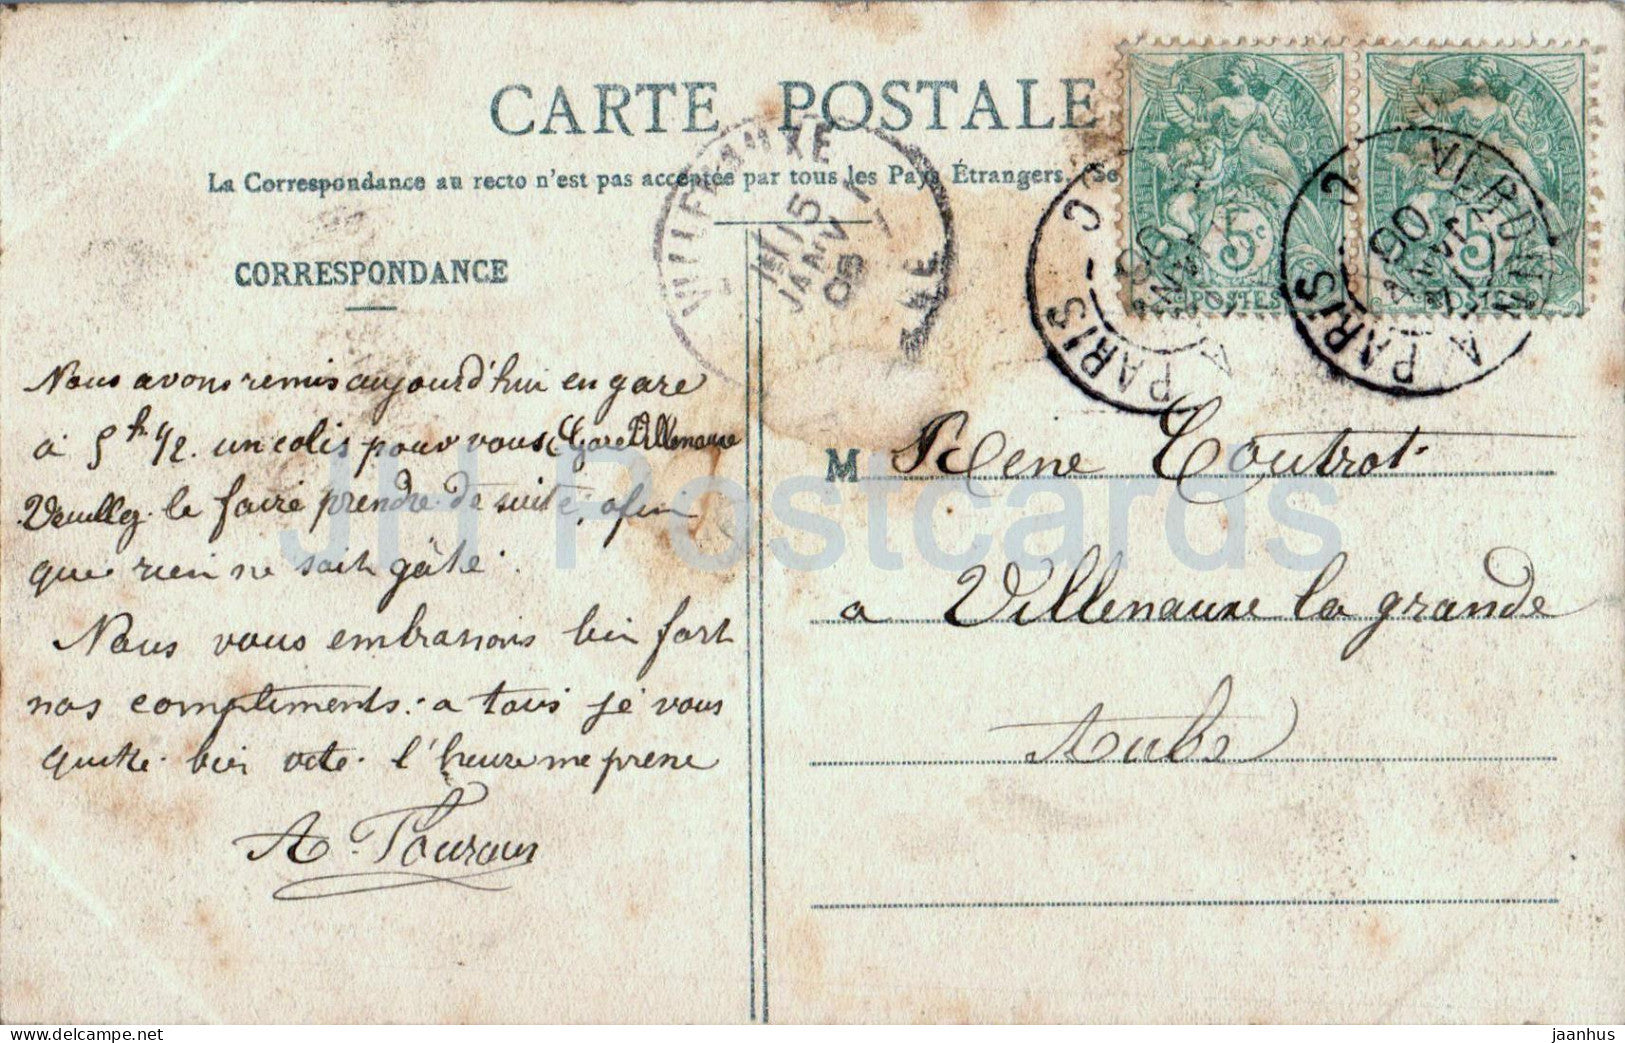 CARTE POSTALE
La Correspondance au recto n'est pas acceptée par tous les Pays Étrangers. (Se
CORRESPONDANCE
Nous avons remis aujourd'hui en gare
à 5h 1/2. un colis pour vous (Gare Villenauxe
Veuillez le faire prendre de suite, afin
que rien ne soit gâté.
Nous vous embrassons bien fort
nos compliments. a tous je vous
quitte bien vite. l'heure me prene
A.
M Rene Coutrot
a Villenauxe la grande
Aube
VILLENAUXE
15
JANV
05
AUBE
5c
POSTES
PARIS
5
POSTES
PARIS
JH Postcards
www.delcampe.net
jaanhus